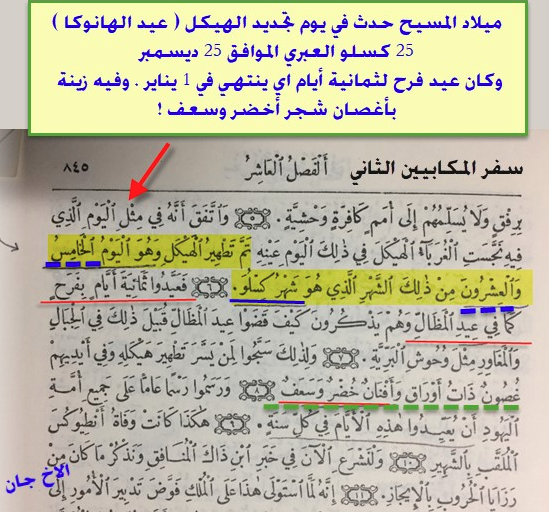 ميلاد المسيح حدث في يوم تجديد الهيكل ( عيد الهانوكا )
25 كسلو العبري الموافق 25 ديسمبر
وكان عيد فرح لثمانية أيام اي ينتهي في 1 يناير . وفيه زينة
بأغصان شجر أخضر وسعف !
سفر المكابيين الثاني أَلْفَصْلُ ٱلْعَاشِرُ ٨٤٥
بِرِفْقٍ وَلَا يُسْلِمَهُمْ إِلَى أُمَمٍ كَافِرَةٍ وَحْشِيَّةٍ . ﴿٥﴾ وَٱتَّفَقَ أَنَّهُ فِي مِثْلِ ٱلْيَوْمِ ٱلَّذِي
فِيهِ نَجَّسَتِ ٱلْغُرَبَآءُ ٱلْهَيْكَلَ فِي ذٰلِكَ ٱلْيَوْمِ عَيْنِهِ تَمَّ تَطْهِيرُ ٱلْهَيْكَلِ وَهُوَ ٱلْيَوْمُ ٱلْخَامِسُ
وَٱلْعِشْرُونَ مِنْ ذٰلِكَ ٱلشَّهْرِ ٱلَّذِي هُوَ شَهْرُ كِسْلُوَ . ﴿٦﴾ فَعَيَّدُوا ثَمَانِيَةَ أَيَّامٍ بِفَرَحٍ
كَمَا فِي عِيدِ ٱلْمَظَالِّ وَهُمْ يَذْكُرُونَ كَيْفَ قَضَوْا عِيدَ ٱلْمَظَالِّ قُبَيْلَ ذٰلِكَ فِي ٱلْجِبَالِ
وَٱلْمَغَاوِرِ مِثْلَ وُحُوشِ ٱلْبَرِّيَّةِ . ﴿٧﴾ وَلِذٰلِكَ سَبَّحُوا لِمَنْ يَسَّرَ تَطْهِيرَ هَيْكَلِهِ وَفِي أَيْدِيهِمْ
غُصُونٌ ذَاتُ أَوْرَاقٍ وَأَفْنَانٌ خُضْرٌ وَسَعَفٌ . ﴿٨﴾ وَرَسَمُوا رَسْمًا عَامًّا عَلَى جَمِيعِ أُمَّةِ
ٱلْيَهُودِ أَنْ يُعَيِّدُوا هٰذِهِ ٱلْأَيَّامَ فِي كُلِّ سَنَةٍ . ﴿٩﴾ هٰكَذَا كَانَتْ وَفَاةُ أَنْطِيُوكُسَ
ٱلْمُلَقَّبِ بِٱلشَّهِيرِ . ﴿١٠﴾ وَلْنَشْرَعِ ٱلْآنَ فِي خَبَرِ ٱبْنِ ذَاكَ ٱلْمُنَافِقِ وَنَذْكُرْ مَا كَانَ مِنْ
رَزَايَا ٱلْحُرُوبِ بِٱلْإِيجَازِ . ﴿١١﴾ إِنَّهُ لَمَّا ٱسْتَوْلَى هٰذَا عَلَى ٱلْمُلْكِ فَوَّضَ تَدْبِيرَ ٱلْأُمُورِ إِلَى
الاخ جان